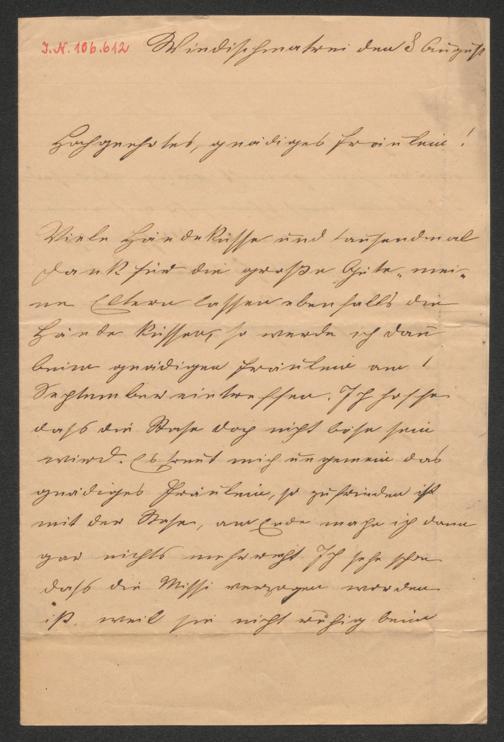 I.N. 106.612 Windischmatrei den 8 August
Hochgeehrtes, gnädiges Fräulein!
Viele Händeküsse und tausendmal
Dank für die große Güte, mei-
ne Eltern lassen ebenfalls die
Hände küssen, so werde ich dan̄
beim gnädigen Fräulein am 1
September eintreffen. Ich hoffe
dass die Rese doch nicht böse sein
wird. Es freut mich ungemein das
gnädiges Fräulein, so zufrieden ist
mit der Rese, am Ende mache ich dann
gar nichts mehr recht. Ich sehe schon
dass die Missi verzogen worden
ist weil sie nicht ruhig beim